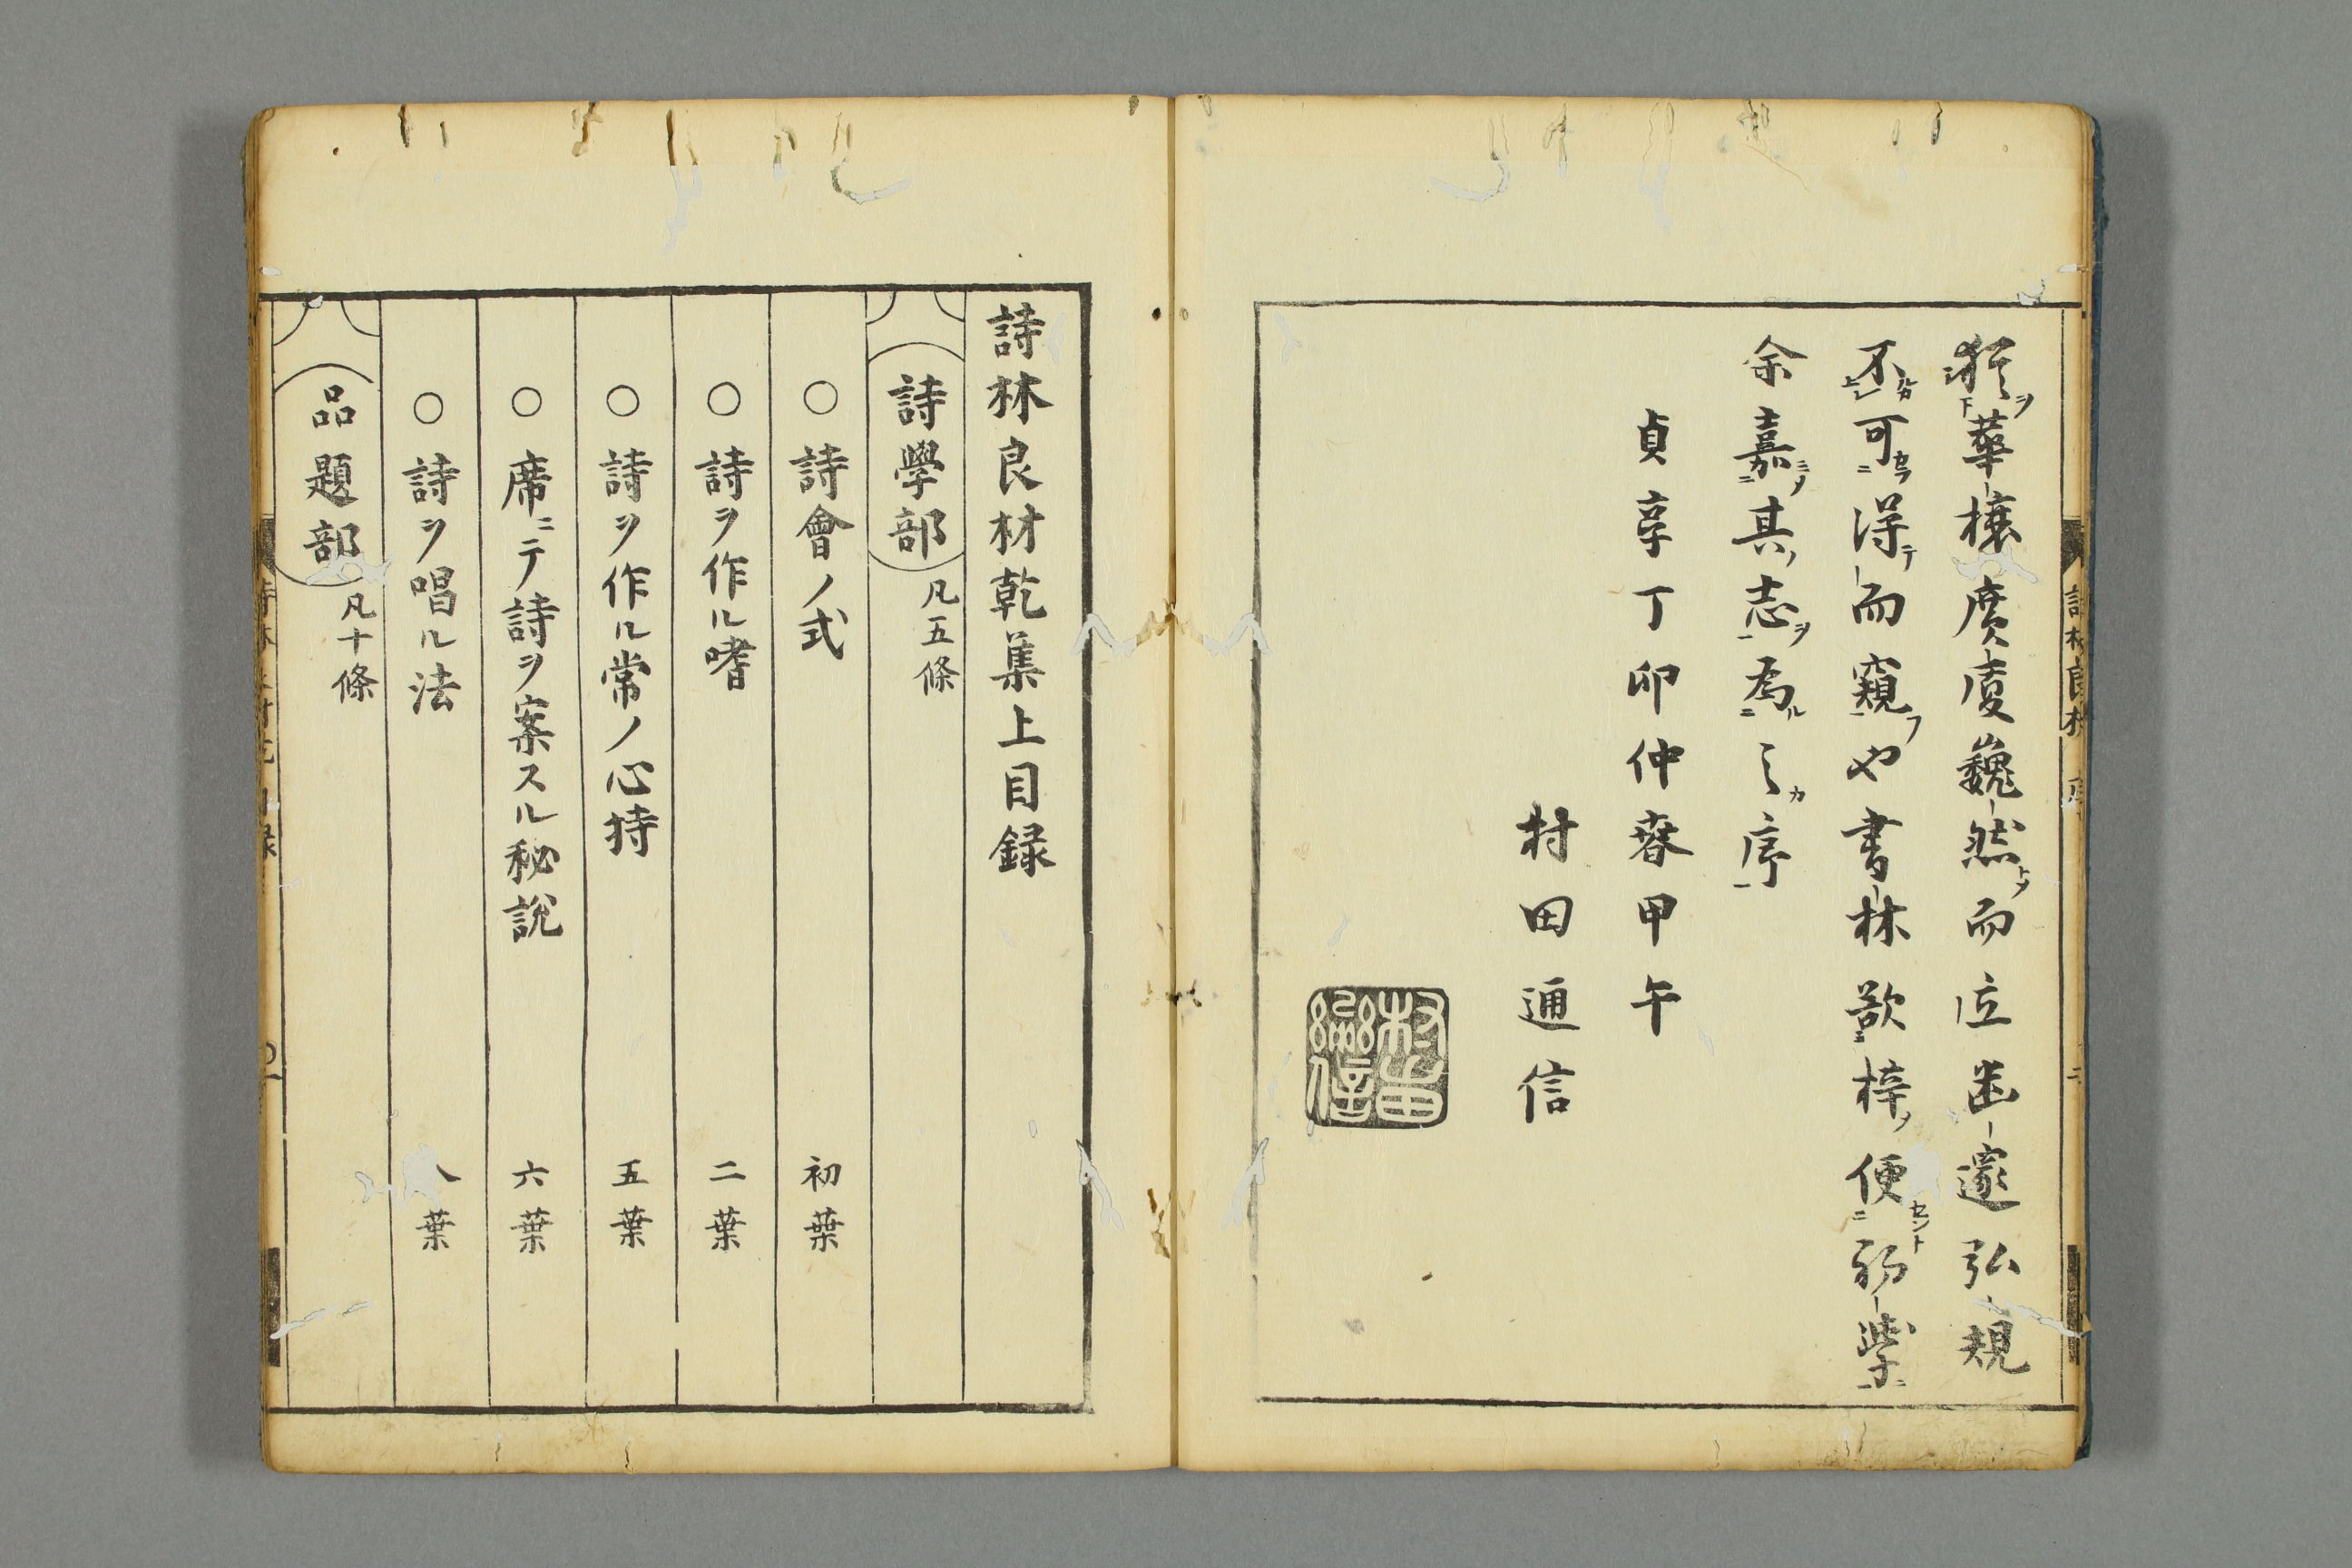 華榱廣廈巍然而位幽邃弘規
不可得而窺也書林欲梓便初學
余嘉其志為之序
貞享丁卯仲春甲午
村田通信
詩林良材乾集上目録
詩學部 凡五條
○詩會ノ式 初葉
○詩ヲ作ル嗜 二葉
○詩ヲ作ル常ノ心持 五葉
○席ニテ詩ヲ案スル秘説 六葉
○詩ヲ唱ル法 八葉
品題部 凡十條